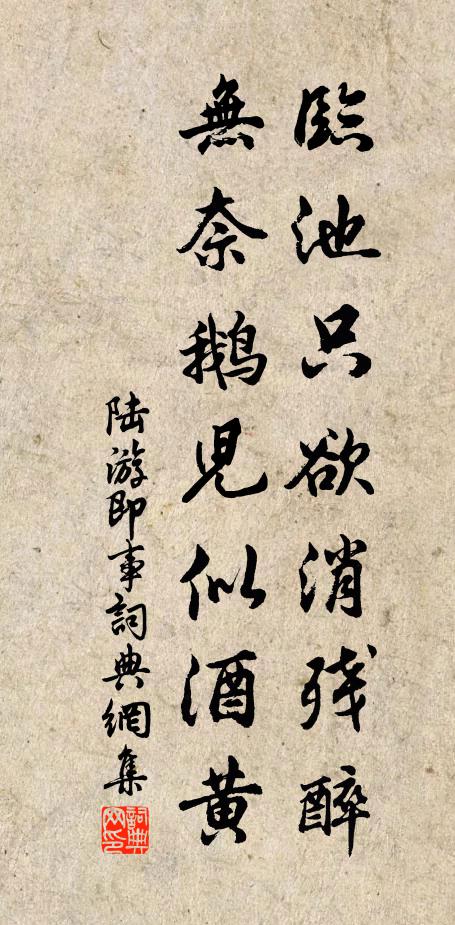 臨池只欲消残醉
無奈鵝児似酒黄
陆游即事詞典網集
詞典網印